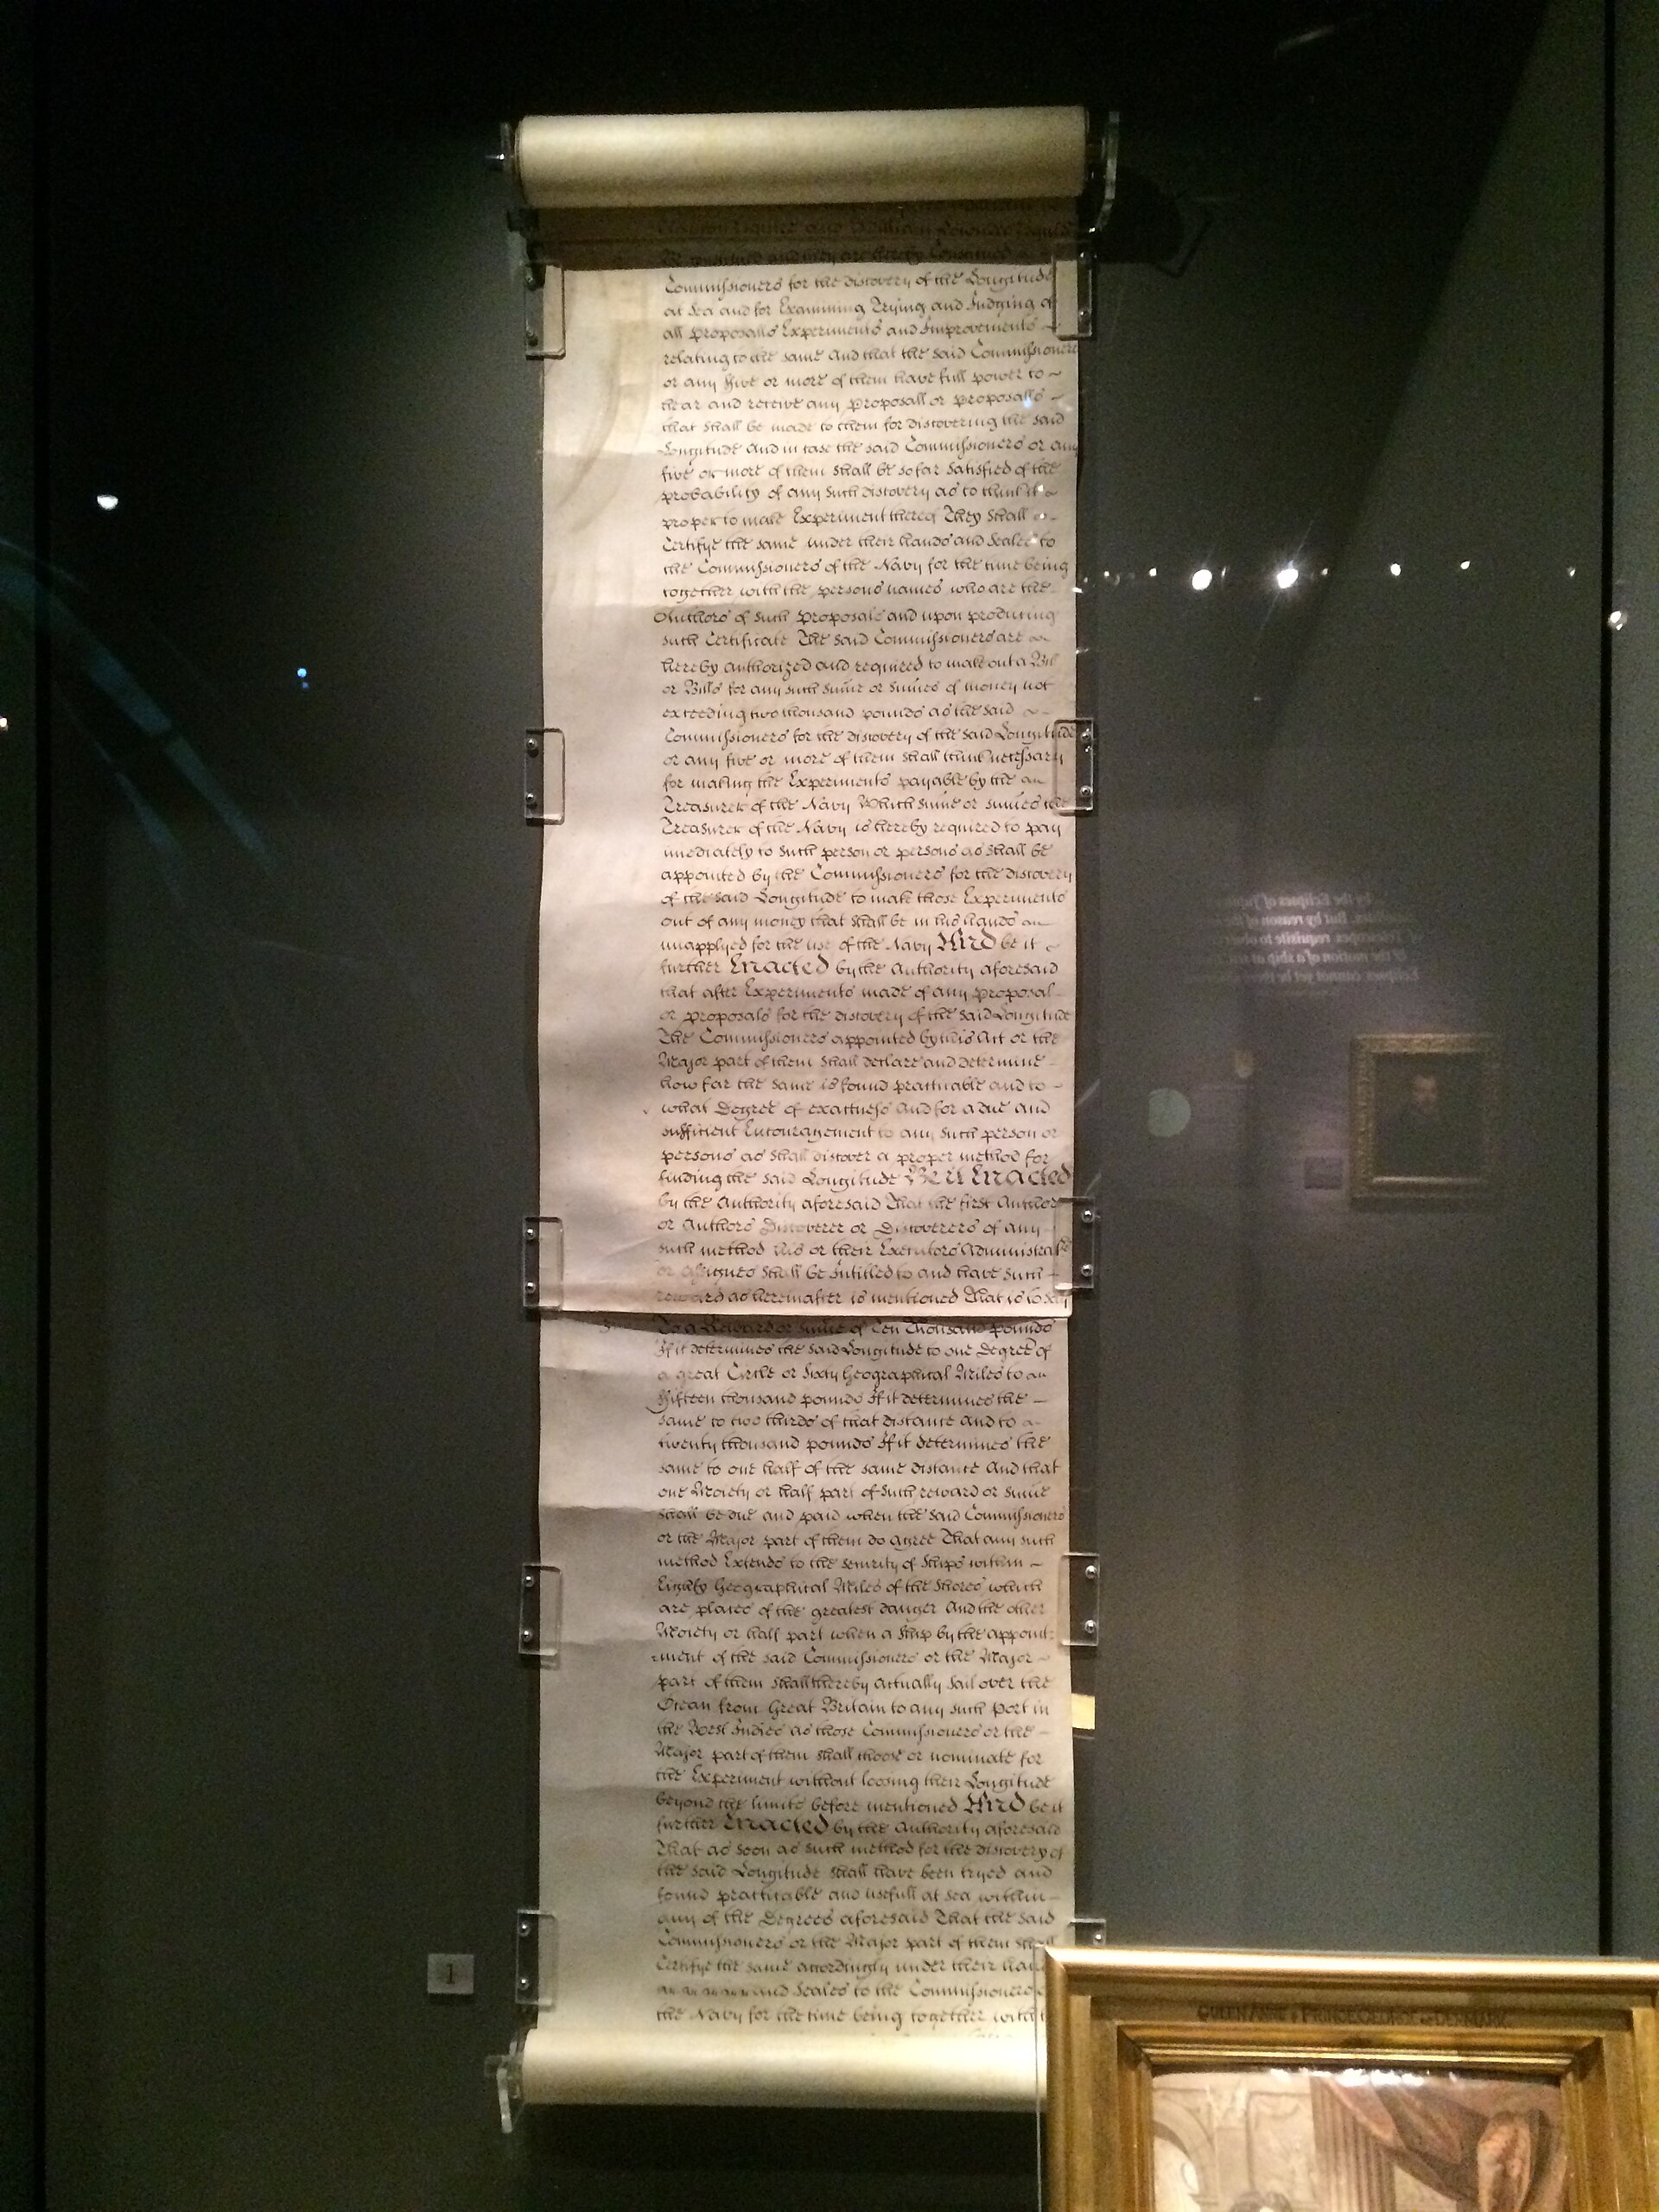 Esquire and William Lowndes Esquire
Be constituted and they are hereby Constituted
Commissioners for the discovery of the Longitude
at Sea and for Examining Trying and Judging of
all Proposalls Experiments and Improvements
relating to the same And that the said Commissioners
or any Five or more of them have full power to
hear and receive any Proposall or proposalls
that shall be made to them for discovering the said
Longitude And in case the said Commissioners or any
five or more of them shall be so far Satisfied of the
probability of any Such discovery as to think it
proper to make Experiment thereof They Shall
Certifye the same under their hands and Seales to
the Commissioners of the Navy for the time being
together with the persons names who are the
Authors of such Proposals and upon producing
such Certificate The said Commissioners are
hereby authorized and required to make out a Bill
or Bills for any such sume or sumes of money not
exceeding two thousand pounds as the said
Commissioners for the discovery of the said Longitude
or any five or more of them shall think necessary
for making the Experiments payable by the
Treasurer of the Navy Which sume or sumes the
Treasurer of the Navy is hereby required to pay
imediately to such person or persons as shall be
appointed by the Commissioners for the discovery
of the said Longitude to make those Experiments
out of any money that shall be in his hands
unapplyed for the use of the Navy And be it
further Enacted by the Authority aforesaid
that after Experiments made of any proposal
or proposals for the discovery of the said Longitude
The Commissioners appointed by this Act or the
Major part of them Shall declare and determine
how far the same is found practicable and to
what Degree of exactness And for a due and
sufficient Encouragement to any such person or
persons as shall discover a proper method for
finding the said Longitude Be it Enacted
by the Authority aforesaid That the first Author
or Authors Discoverer or Discoverers of any
such method his or their Executors Administrators
or Assignes shall be Intitled to and have such
reward as hereinafter is mentioned That is to say
To a Reward or sume of Ten Thousand pounds
If it determines the said Longitude to one Degree of
a great Circle or Sixty Geographical Miles to
Fifteen thousand pounds If it determines the
same to two thirds of that distance And to
twenty thousand pounds If it determines the
same to one half of the same distance And that
one Moiety or half part of such reward or sume
shall be due and paid when the said Commissioners
or the Major part of them do agree That any such
method Extends to the security of Ships within
Eighty Geographical Miles of the Shores which
are places of the greatest danger And the other
Moiety or half part when a Ship by the appoint-
ment of the said Commissioners or the Major
part of them shall thereby actually Sail over the
Ocean from Great Britain to any such Port in
the West Indies as those Commissioners or the
Major part of them shall choose or nominate for
the Experiment without loosing their Longitude
beyond the limits before mentioned And be it
further Enacted by the Authority aforesaid
That as soon as such method for the discovery of
the said Longitude shall have been tryed and
found practicable and usefull at Sea within
any of the Degrees aforesaid That the said
Commissioners or the Major part of them shall
Certifye the same accordingly under their
and Seales to the Commissioners
the Navy for the time being together with
1
by the Eclipses of
But by reason of the
requisite to
of the motion of a ship at
Eclipses cannot yet be
QUEEN ANNE & PRINCE GEORGE OF DENMARK